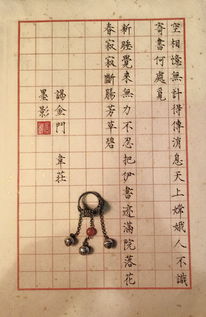 空相憶無計得傳消息天上嫦娥人不識
寄書何處覓
新睡覺來無力不忍把伊書迹滿院落花
春寂寂斷腸芳草碧
謁金門 韋莊
墨影